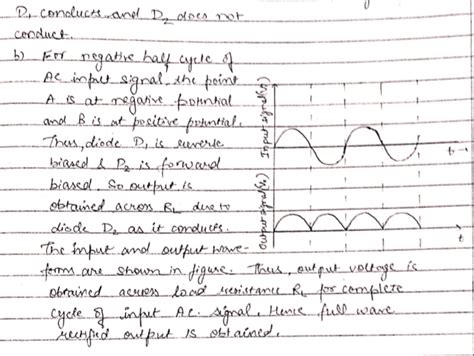 D₁ conducts and D₂ does not
conduct.
b) For negative half cycle of
AC input signal, the point
A is at negative potential
and B is at positive potential.
Thus, diode D₁ is reverse
biased & D₂ is forward
biased. So output is
obtained across RL due to
diode D₂ as it conducts.
The input and output wave-
forms are shown in figure. Thus, output voltage is
obtained across load resistance RL for complete
cycle of input AC signal. Hence full wave
rectified output is obtained.
Input signal(Vi)
t
Output signal(V₀)
t